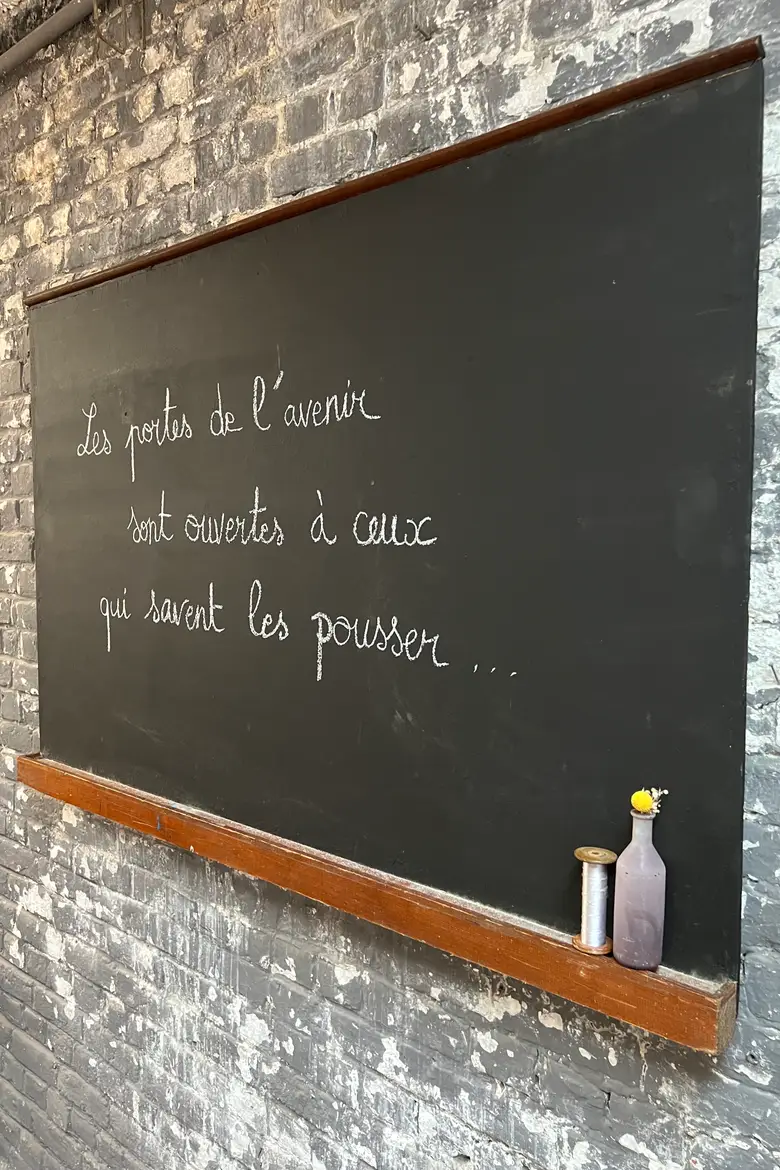 Les portes de l'avenir
sont ouvertes à ceux
qui savent les pousser ...